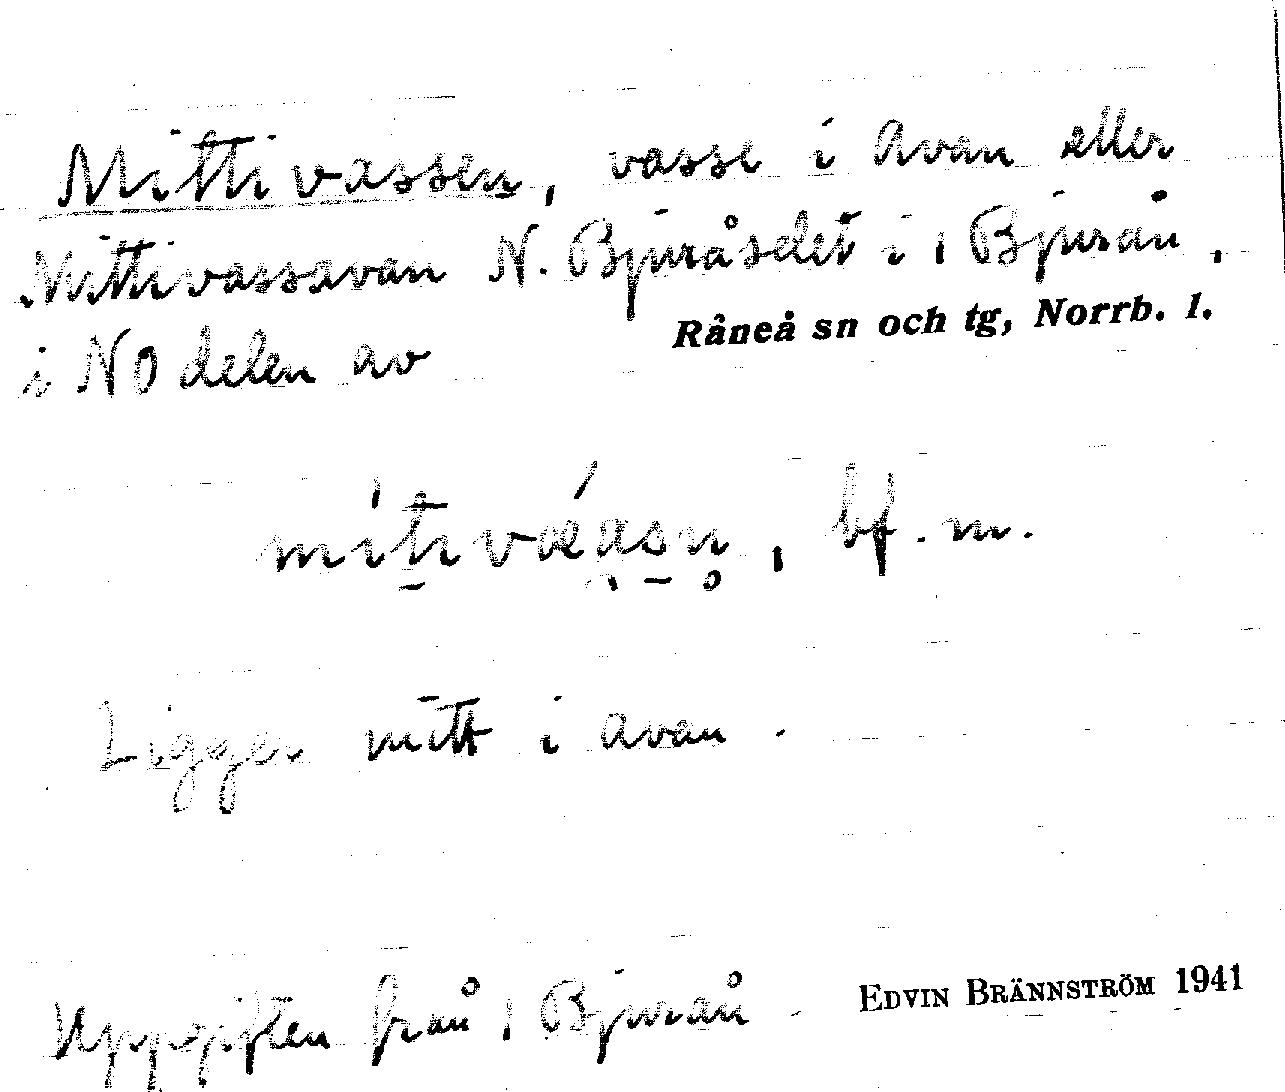 Mittivassen, vasse i Avan eller
Mittivassavan N. Bjuråselet i 1 Bjurån,
i NO delen av Råneå sn och tg, Norrb. l.
mítivǽasn, bf. m.
Ligger mitt i avan.
Uppgiften från 1 Bjurån. EDVIN BRÄNNSTRÖM 1941